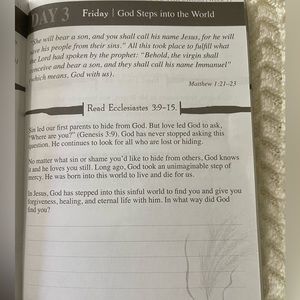 DAY 3 Friday | God Steps into the World
"She will bear a son, and you shall call his name Jesus, for he will
save his people from their sins." All this took place to fulfill what
the Lord had spoken by the prophet: "Behold, the virgin shall
conceive and bear a son, and they shall call his name Immanuel"
(which means, God with us).
Matthew 1:21–23
Read Ecclesiastes 3:9–15.
Sin led our first parents to hide from God. But love led God to ask,
"Where are you?" (Genesis 3:9). God has never stopped asking this
question. He continues to look for all who are lost or hiding.
No matter what sin or shame you'd like to hide from others, God knows
it and he loves you still. Long ago, God took an unimaginable step of
mercy. He was born into this world to live and die for us.
In Jesus, God has stepped into this sinful world to find you and give you
forgiveness, healing, and eternal life with him. In what way did God
find you?